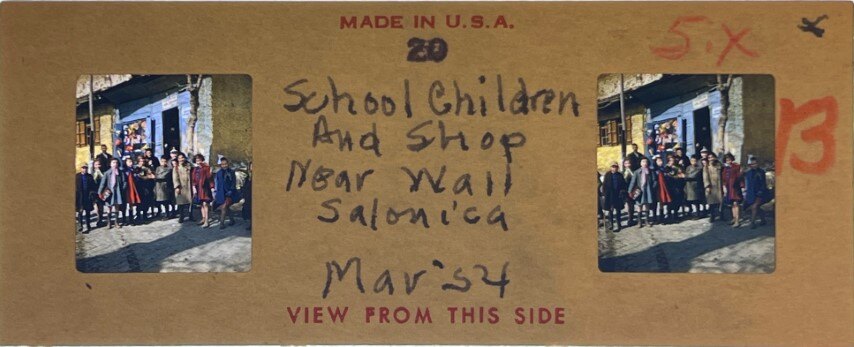 MADE IN U.S.A.
20
5.X
x
School Children
And Shop
Near Wall
Salonica
B
Mar '54
VIEW FROM THIS SIDE